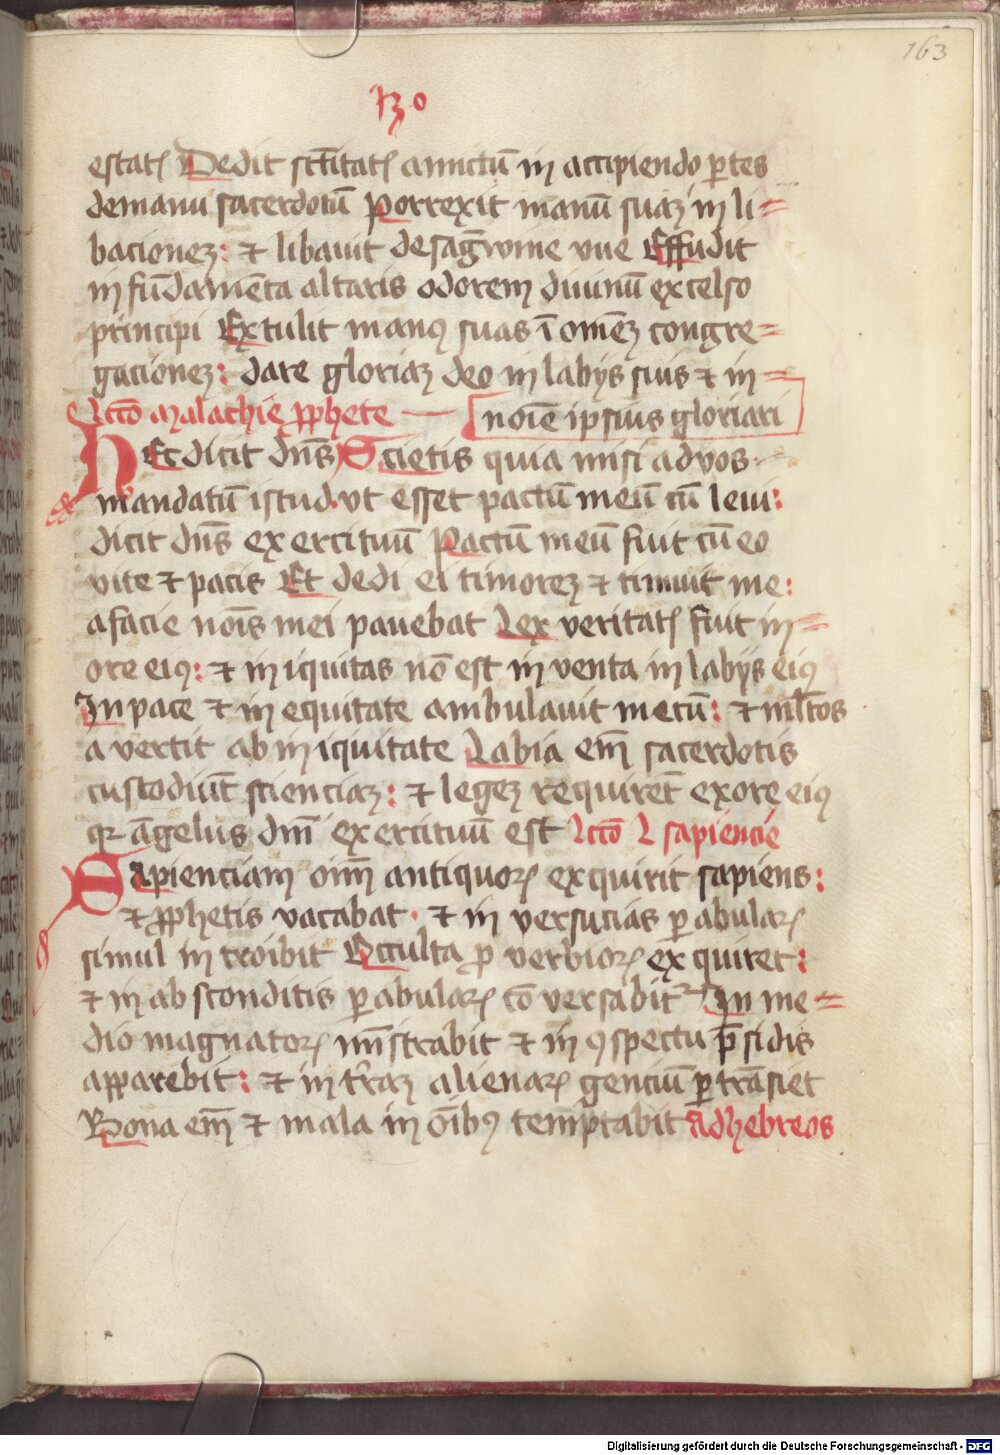 163
130
estatꝭ Dedit sc̄titatꝭ amictū in accipiendo ꝑtes
demanu sacerdotū Porrexit manū suaꝫ in li=
bacioneꝫ: ⁊ libauit desag̅wine vue Effudit
in fūdamēta altaris odorem diuinū excelso
principi Extulit manꝯ suas ī omēꝫ congre=
gacioneꝫ: dare gloriaꝫ deo in labijs suis ⁊ in=
noīe ipsius gloriari
lcc̄o Malachie ꝓphete
HEc dicit dn̄s Scietis quia misi ad vos
mandatū istud. vt esset pactū meū cū leui:
dicit dn̄s exercituū Pactū meū fuit cū eo
vite ⁊ pacis Et dedi ei timoreꝫ ⁊ timuit me:
afacie nōis mei pauebat Lex veritatꝭ fuit in=
ore eiꝯ: ⁊ in iquitas nō est in venta in labijs eiꝯ
In pace ⁊ in equitate ambulauit mecū: ⁊ ml̄tos
a vertit ab in iquitate Labia em̄ sacerdotis
custodiūt scienciaꝫ: ⁊ legeꝫ requirēt exore eiꝯ
qꝛ āgelus dm̄ exercituū est lcc̄o l sapiencie
Sapienciam oim̄ antiquoꝝ exquirit sapiens:
⁊ ꝓphetis vacabat. ⁊ in versucias ꝑabulaꝝ
simul in troibit Occulta ꝓ verbioꝝ ex quiret:
⁊ in ab sconditis ꝑabulaꝝ cō versabit᷑ In me=
dio magnatoꝝ mīstrabit ⁊ in ꝯspectu p̄sidis
apparebit: ⁊ in tr̄aꝫ alienaꝝ genciū ꝑtrāsiet
Bona em̄ ⁊ mala in oībꝯ temptabit ad hebreos
Digitalisierung gefördert durch die Deutsche Forschungsgemeinschaft - DFG